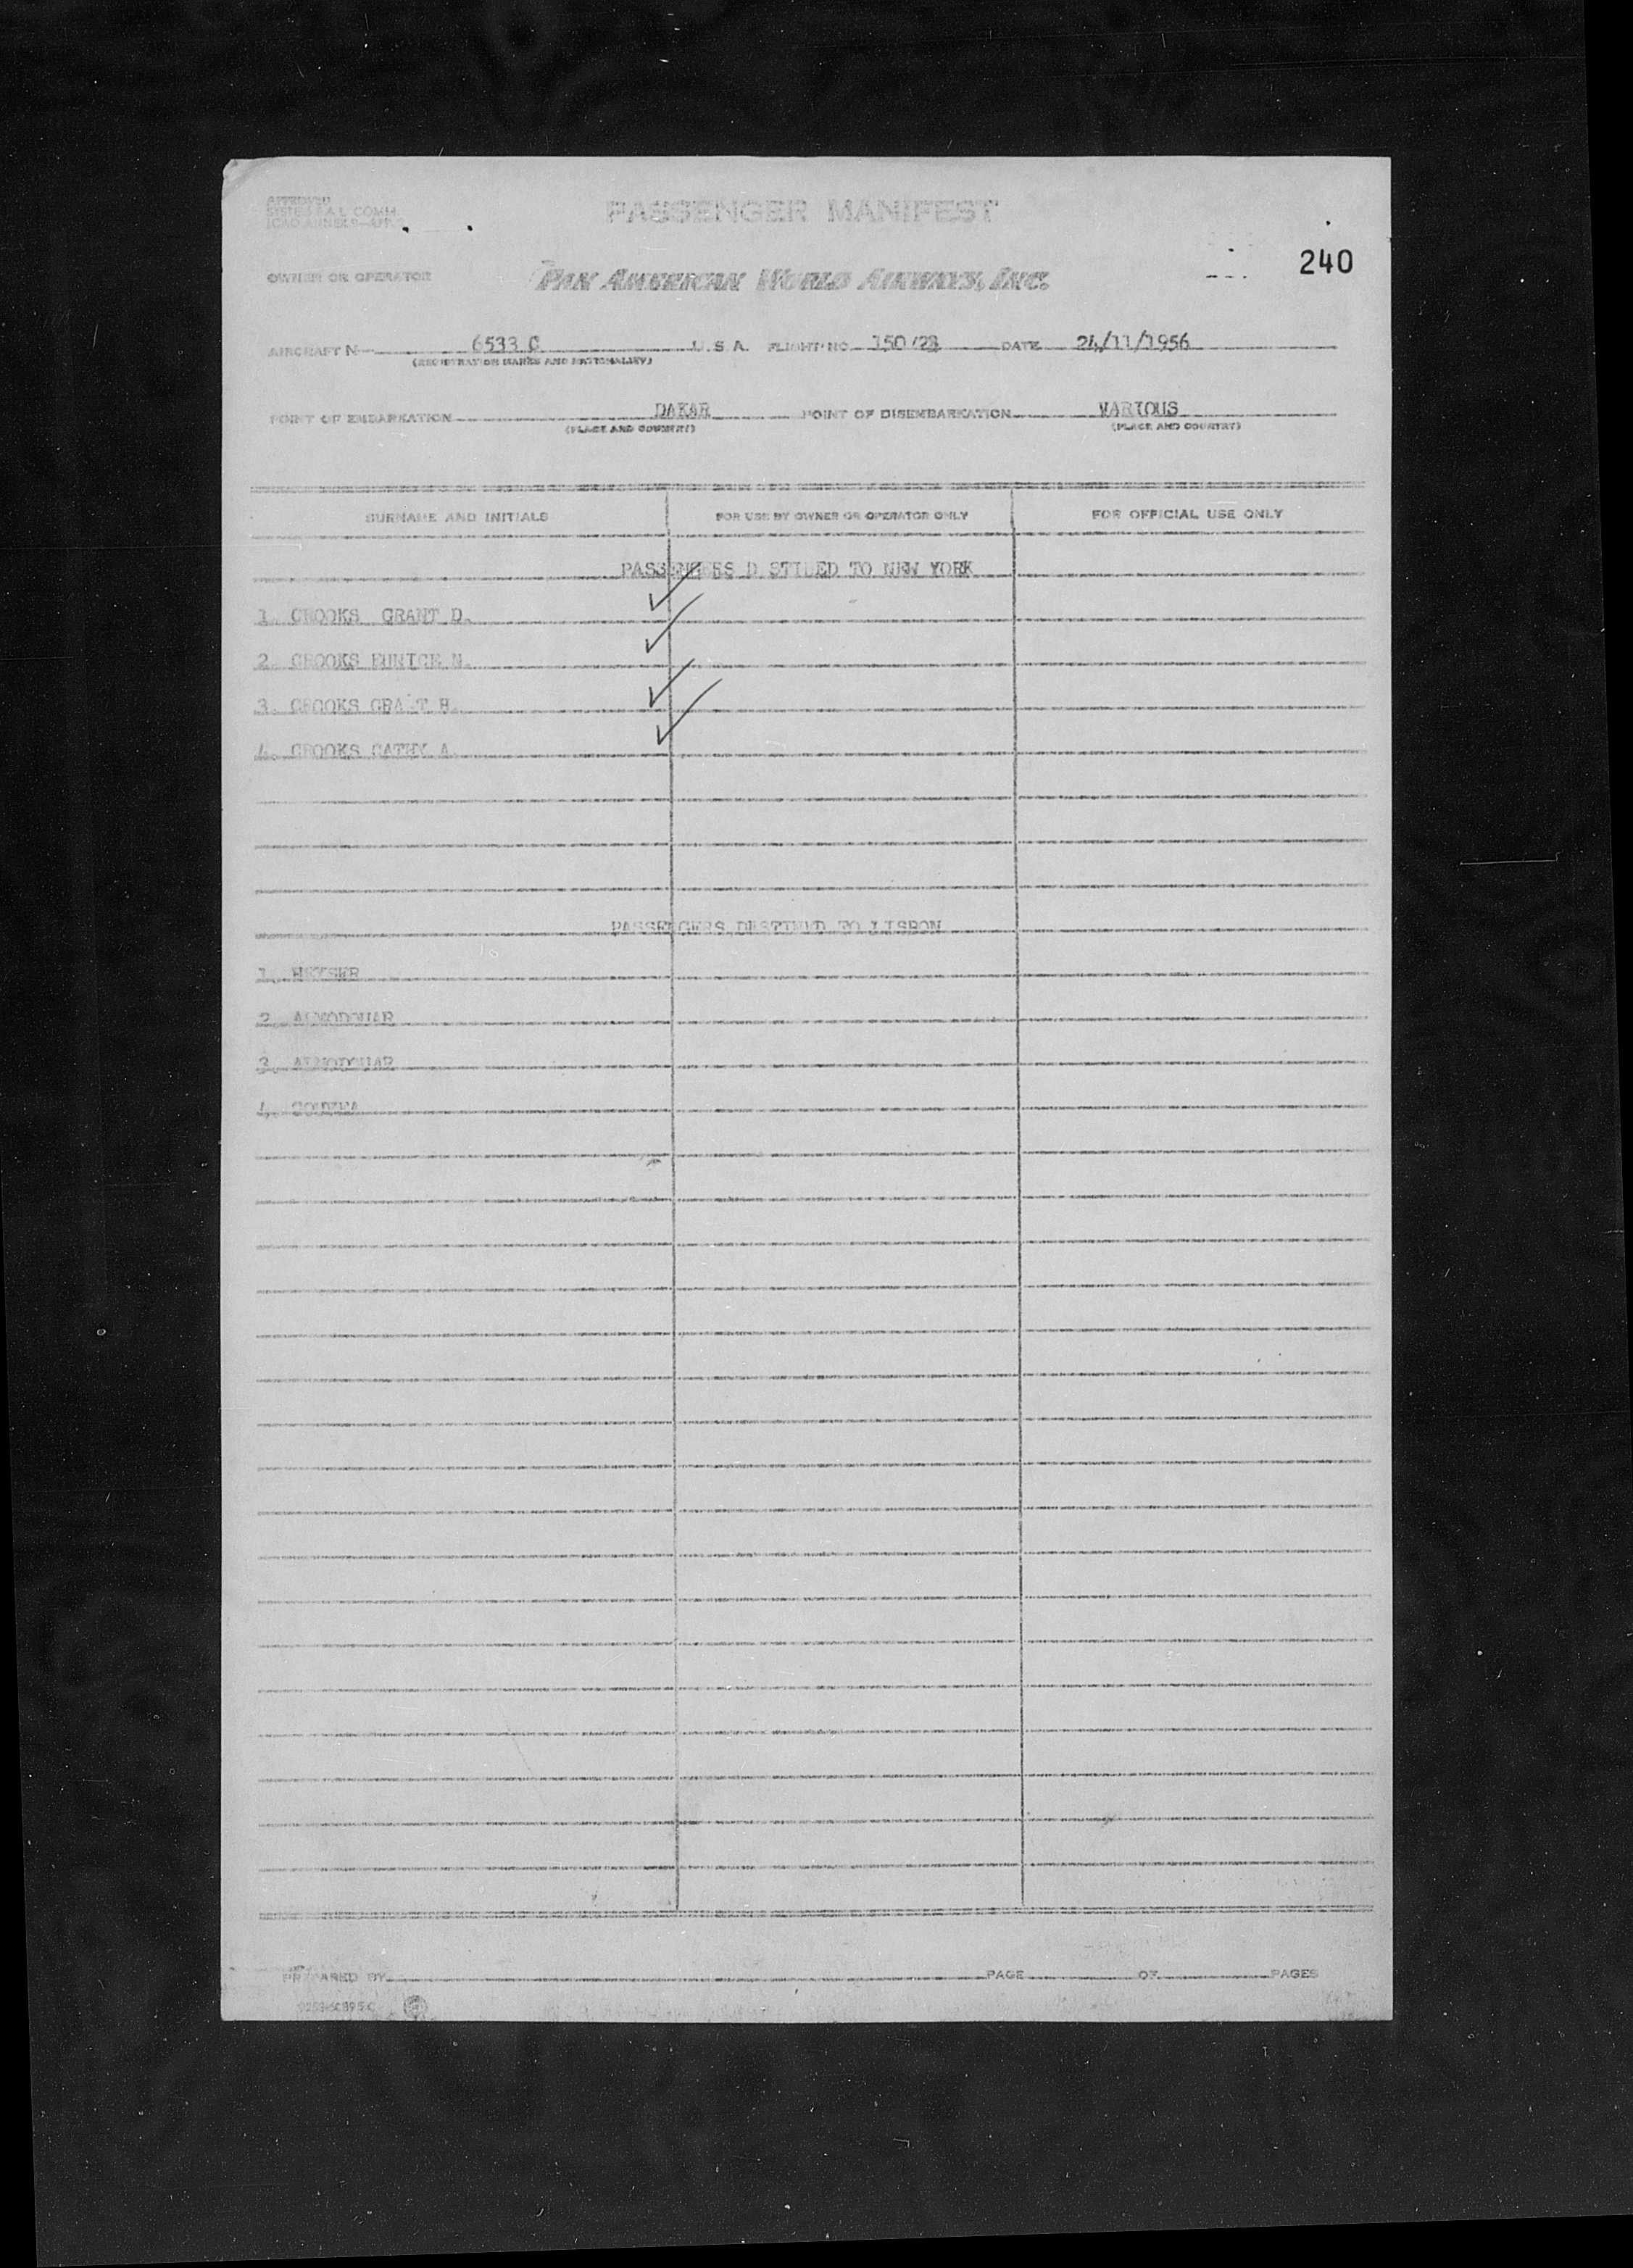 APPROVED PASSENGER MANIFEST
SYSTEM F.A.L. COMM.
ICAO ANNEX 9—APP.
240
OWNER OR OPERATOR PAN AMERICAN WORLD AIRWAYS, INC.
AIRCRAFT N 6533 C U.S.A. FLIGHT NO 150/23 DATE 24/11/1956
(REGISTRATION MARKS AND NATIONALITY)
POINT OF EMBARKATION DAKAR POINT OF DISEMBARKATION VARIOUS
(PLACE AND COUNTRY) (PLACE AND COUNTRY)
SURNAME AND INITIALS FOR USE BY OWNER OR OPERATOR ONLY FOR OFFICIAL USE ONLY
PASSENGERS D STINED TO NEW YORK
1. CROOKS GRANT D.
2. CROOKS EUNICE N.
3. CROOKS GRA T H.
4. CROOKS CATHY A.
PASSENGERS DESTINED TO LISBON
1. HEYSER
2. ALMODOUAR
3. ALMODOUAR
4.
PREPARED BY PAGE OF PAGES